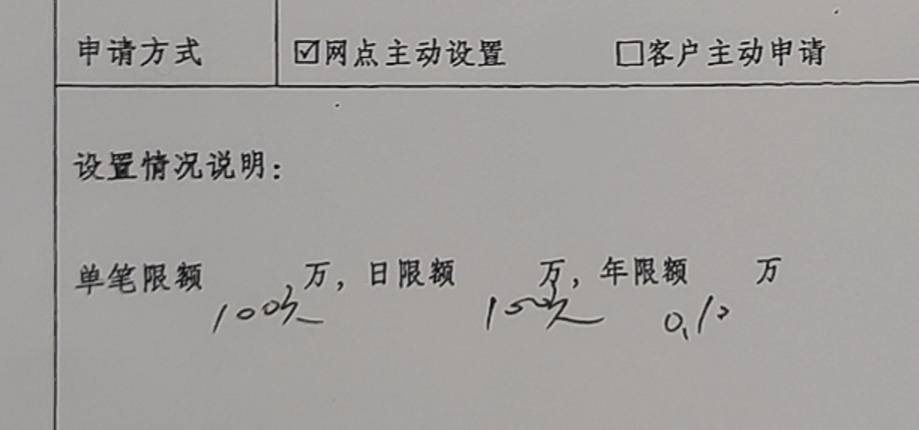 申请方式 ☑网点主动设置 □客户主动申请
设置情况说明：
单笔限额 万，日限额 万，年限额 万
100元 100元 0.10